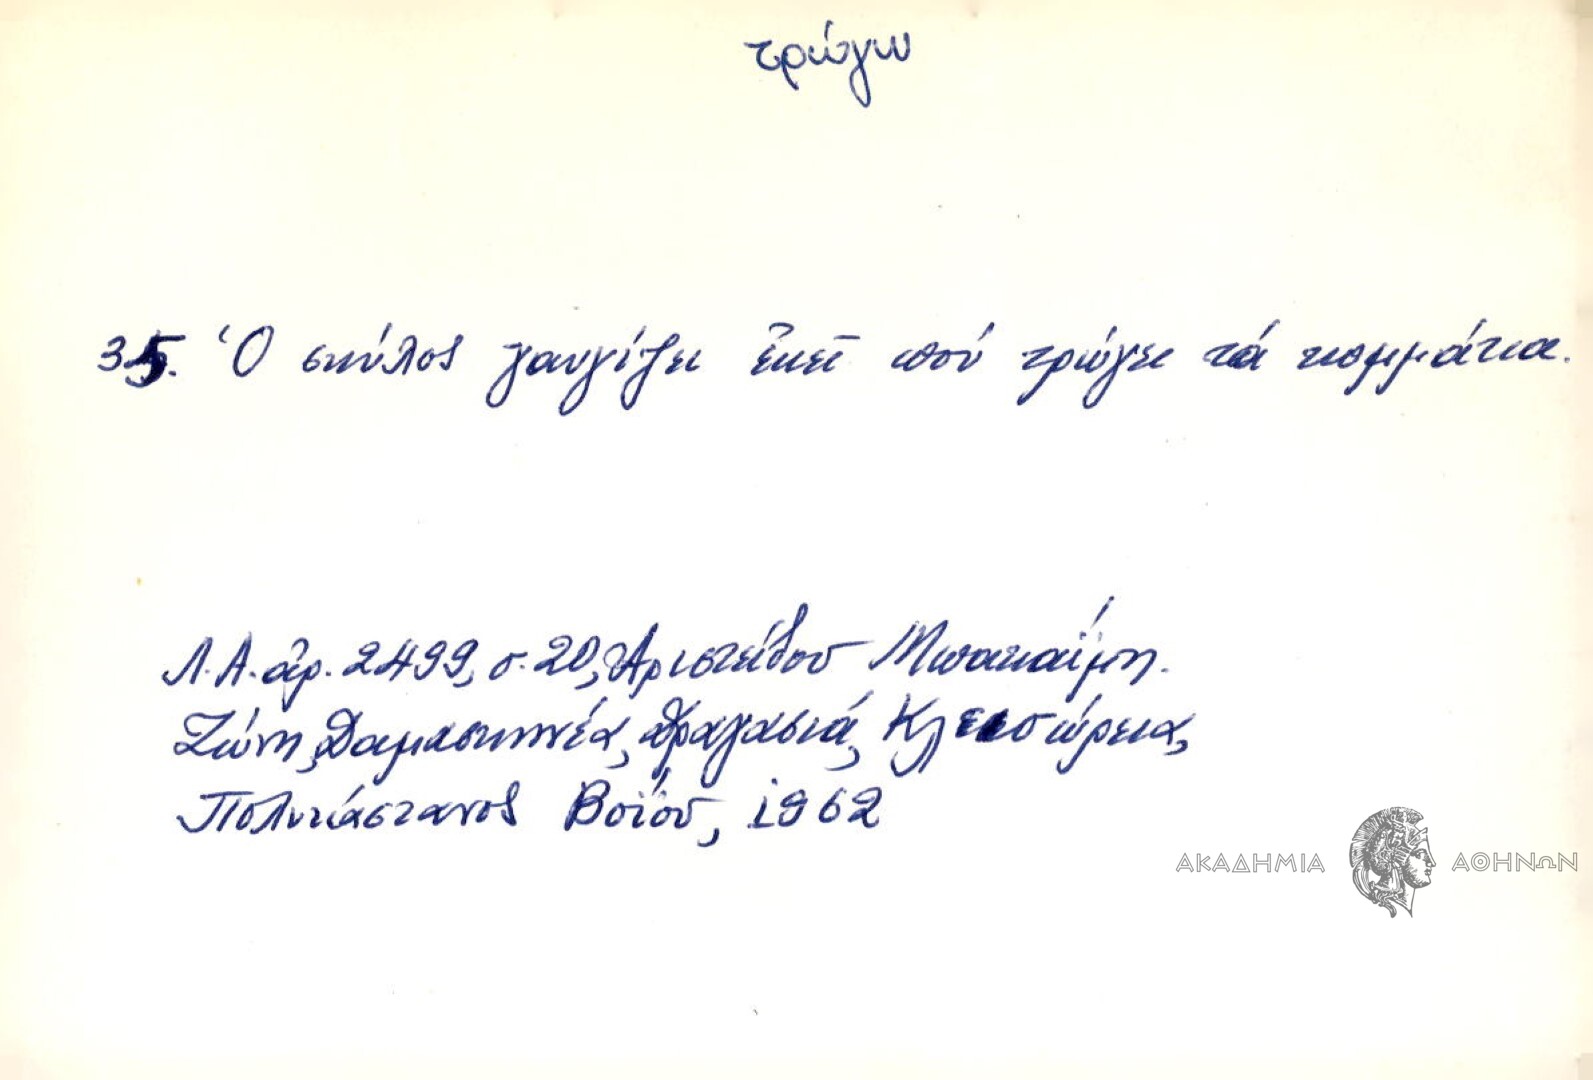 τρώγω
35. Ὁ σκύλος γαυγίζει ἐκεῖ πού τρώγει τά κομμάτια.
Λ.Α. ἀρ. 2499, σ. 20, Ἀριστείδου Μπακαΐμη.
Ζώνη, Δαμασκηνέα, Δραγασιά, Κλεισώρεια,
Πολυκάστανος Βοΐου, 1962
ΑΚΑΔΗΜΙΑ ΑΘΗΝΩΝ